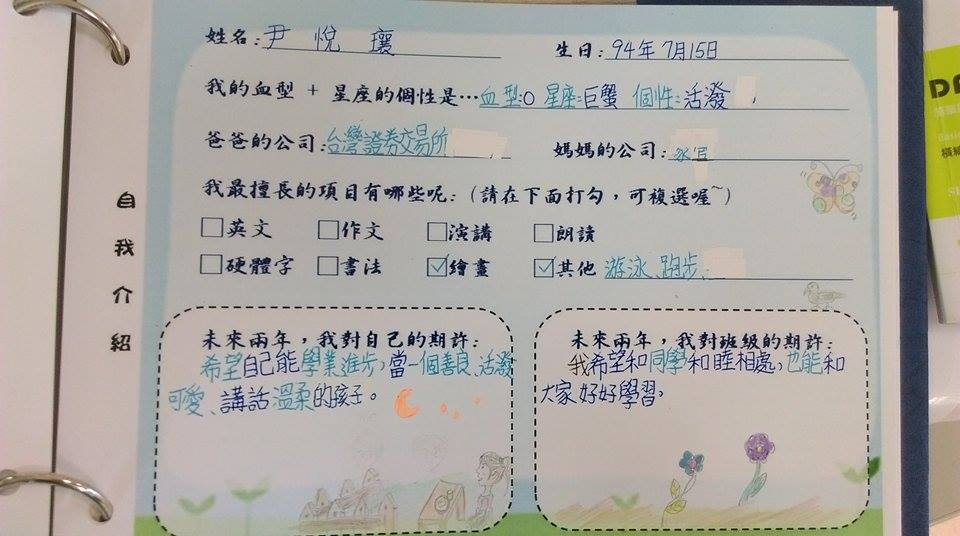 姓名:尹悅瓖 生日:94年7月15日
我的血型 + 星座的個性是…血型:O 星座:巨蟹 個性:活潑
爸爸的公司:台灣證券交易所 媽媽的公司:
我最擅長的項目有哪些呢:(請在下面打勾,可複選喔~)
□英文 □作文 □演講 □朗讀
□硬體字 □書法 ☑繪畫 ☑其他 游泳、跑步、
自我介紹
未來兩年,我對自己的期許:
希望自己能學業進步,當一個善良、活潑
可愛、講話溫柔的孩子。
未來兩年,我對班級的期許:
我希望和同學和睦相處,也能和
大家好好學習。